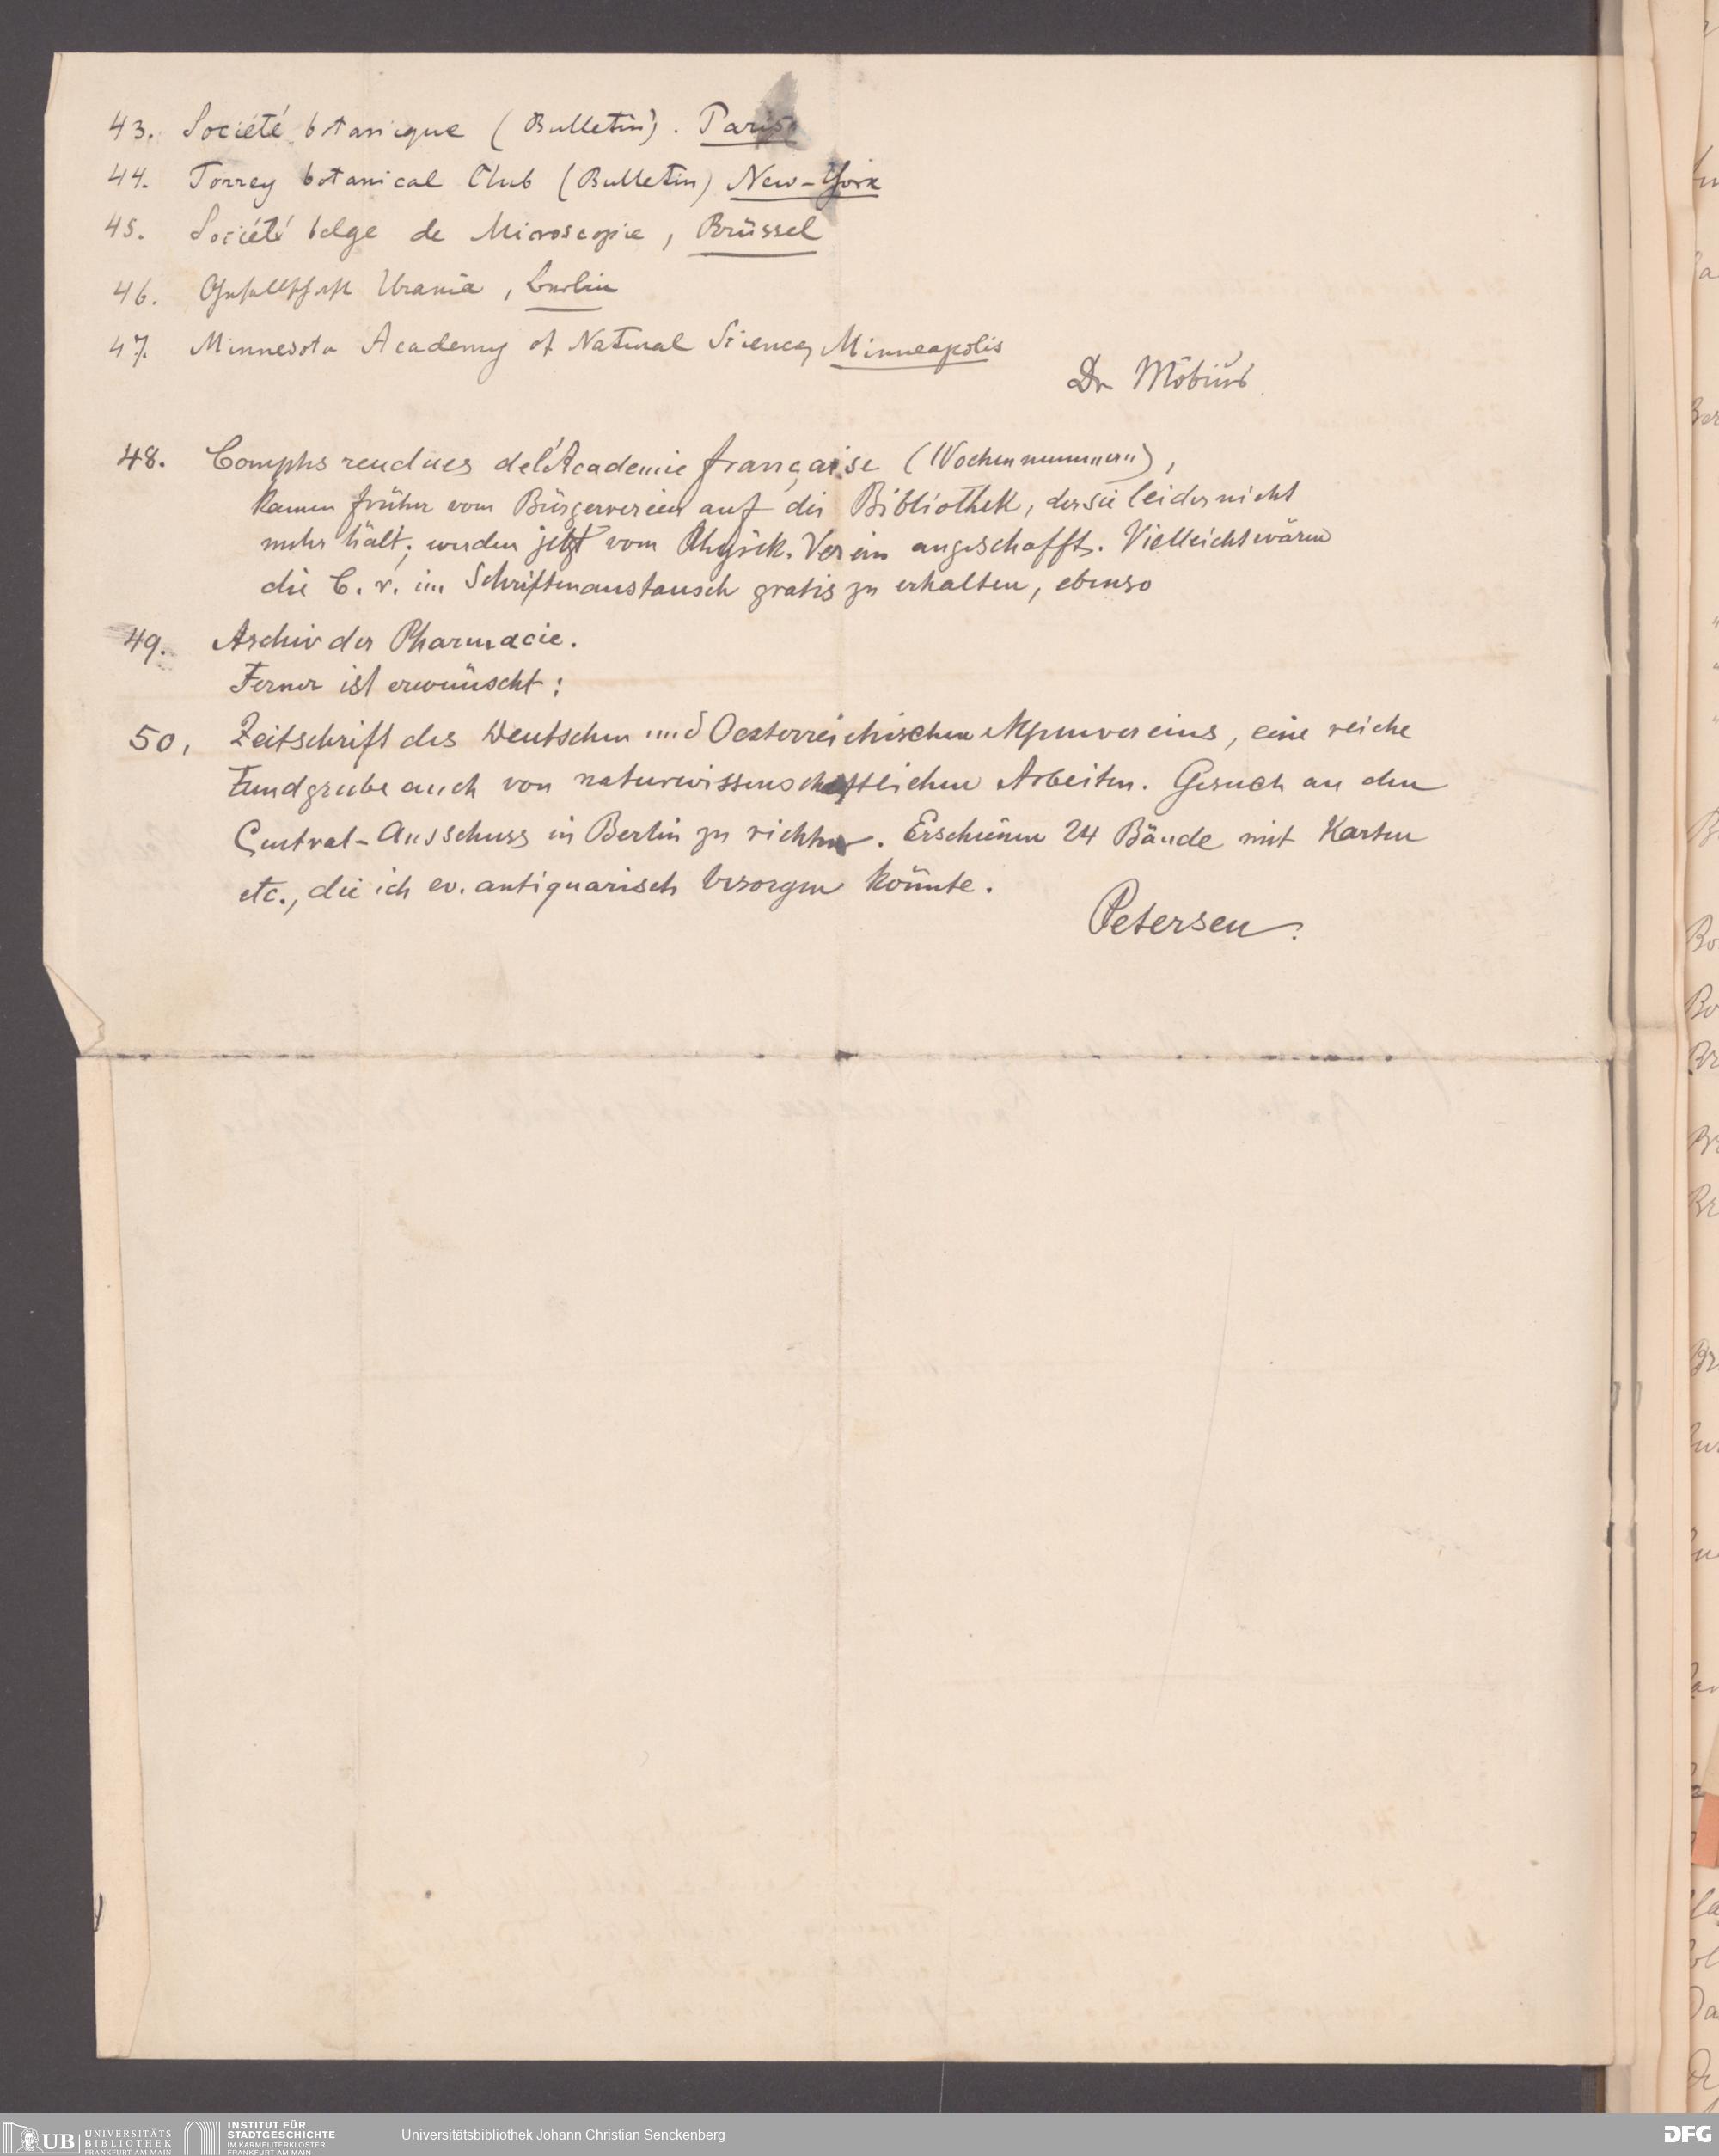 43. Société botanique (Bulletin). Paris
44. Torrey botanical Club (Bulletin) New-York
45. Société belge de Microscopie, Brüssel
46. Gesellschaft Urania, Berlin
47. Minnesota Academy of Natural Science, Minneapolis
Dr Möbius.
48. Comptes rendues del'Academie française (Wochennummern),
kamen früher vom Bürgerverein auf die Bibliothek, der sie leider nicht
mehr hält; werden jetzt vom Physik. Verein angeschafft. Vielleicht wären
die C. r. im Schriftenaustausch gratis zu erhalten, ebenso
49. Archiv der Pharmacie.
Ferner ist erwünscht:
50, Zeitschrift des Deutschen und Oesterreichischen Alpenvereins, eine reiche
Fundgrube auch von naturwissenschaftlichen Arbeiten. Gesuch an den
Central-Ausschuss in Berlin zu richten. Erschienen 24 Bände mit Karten
etc., die ich ev. antiquarisch besorgen könnte.
Petersen.
UB UNIVERSITÄTS
BIBLIOTHEK
FRANKFURT AM MAIN
INSTITUT FÜR
STADTGESCHICHTE
IM KARMELITERKLOSTER
FRANKFURT AM MAIN
Universitätsbibliothek Johann Christian Senckenberg
DFG